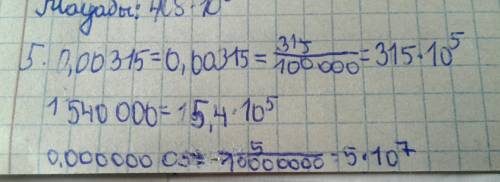 Жауабы: 4,05·10
5. 0,00315=0,00315= 315/100000 =315·10⁵
1540 000=15,4·10⁵
0,000000 05= 5/10000000 =5·10⁷